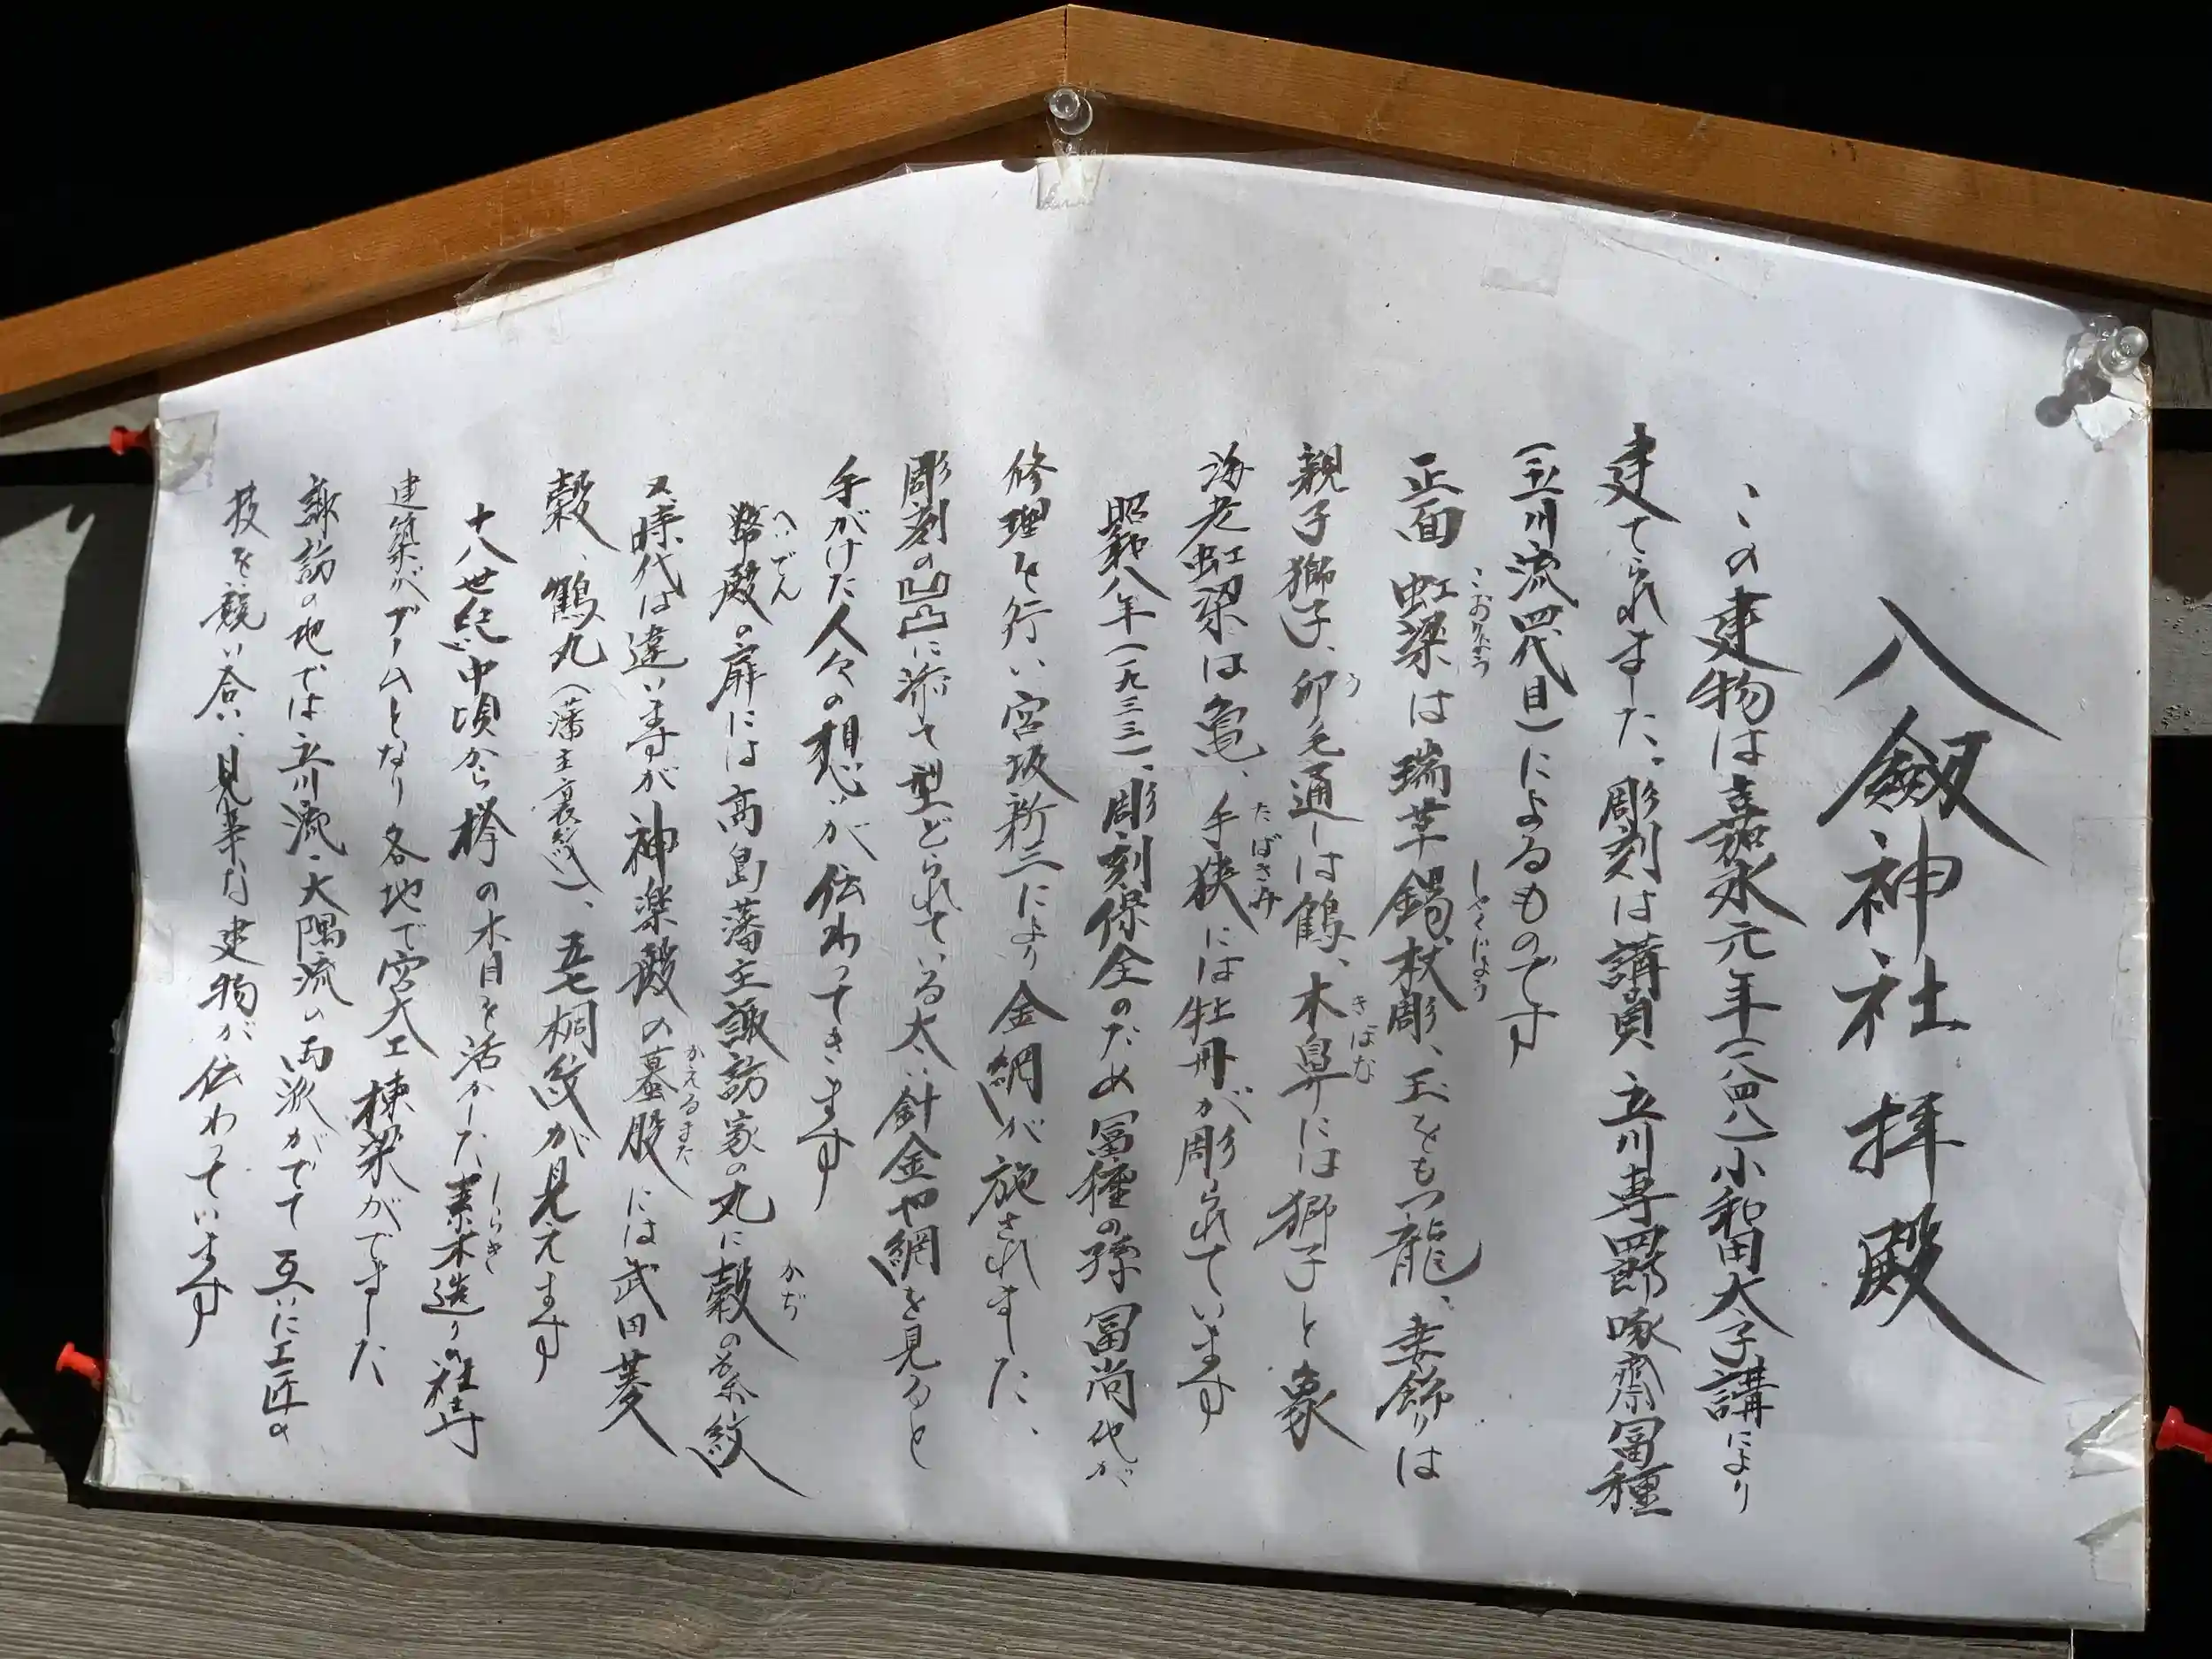 八劔神社 拝殿
この建物は嘉永元年(一八四八)小和田大子講により
建てられました。彫刻は講員 立川専四郎啄斎冨種
(立川流四代目)によるものです
正面 虹梁は瑞草 錫杖彫、玉をもつ龍、妻飾りは
こおりょう
しゃくじょう
親子獅子、卯毛通しは鶴、木鼻には獅子と象
う
きばな
海老虹梁は亀、手狭には牡丹が彫られています
たばさみ
昭和八年(一九三三)、彫刻保全のため冨種の孫 冨尚代が
修理を行い、宮坂新三により金網が施されました、
彫刻の凹凸に添って型どられている太い針金や網を見ると
手がけた人々の想いが伝わってきます
幣殿の扉には高島藩主諏訪家の丸に穀の葉紋
へいでん
かぢ
又時代は違いますが神楽殿の蟇股には武田菱
かえるまた
穀、鶴丸(藩主裏紋)、五七桐紋が見えます
十八世紀中頃から欅の木目を活かした素木造りの社寺
しらき
建築がブームとなり各地で宮大工棟梁がでました
諏訪の地では立川流・大隅流の両派がでて互いに工匠の
技を競い合い、見事な建物が伝わっています